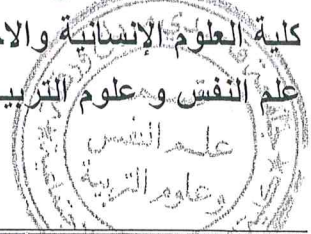 كلية العلوم الإنسانية والاج
علم النفس و علوم التربي
علم النفس
وعلوم التربية